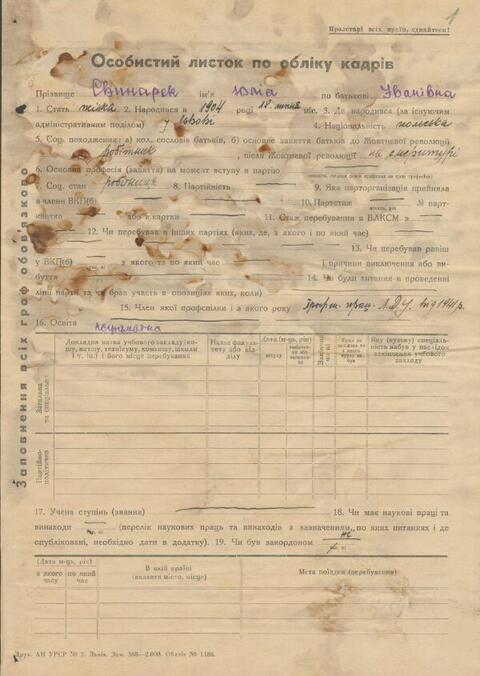 1
Пролетарі всіх країн, єднайтеся!
Особистий листок по обліку кадрів
Прізвище Свинарек ім'я Юлія по батькові Іванівна
1. Стать жінка 2. Народився в 1904 році 18 липня міс. 3. Де народився (за існуючим
адміністративним поділом) у Львові 4. Національність польська
5. Соц. походження: а) кол. сословіє батьків, б) основне заняття батьків до Жовтневої революції
робітник, після Жовтневої революції на емеритурі
6. Основна професія (заняття) на момент вступу в партію
7. Соц. стан робітниця 8. Партійність 9. Яка парторганізація прийняла
в члени ВКП(б) 10. Партстаж № парт-
квитка або к.картки 11. Стаж перебування в ВЛКСМ з
12. Чи перебував в інших партіях (яких, де, з якого і по який час)
13. Чи перебував раніш
у ВКП(б) з якого та по який час і причини виключення або ви-
буття 14. Чи були хитання в проведенні
лінії партії та чи брав участь в опозиціях яких, коли)
15. Член якої профспілки і з якого року профсп. прац. Л.Д.У. від 1941 р.
16. Освіта
Заповнення всіх граф обов'язково
Докладна назва учбового закладу (ви-
шу, втошу, технікуму, комвишу, школи
і т. ін.) і його місце перебування
Назва факуль-
тету або від-
ділу
Дата (м-ць, рік)
вступу
Яку (вузьку) спеціаль-
ність набув у наслідок
закінчення учбового
закладу
Загальна
та спеціальна
Партійно-
політична
17. Учена ступінь (звання) 18. Чи має наукові праці та
винаходи (перелік наукових праць та винаходів з зазначенням, по яких питаннях і де
опубліковані, необхідно дати в додатку). 19. Чи був закордоном ні
(Дата м-ць, рік)
з якого
часу
по який
час
В якій країні
(вказати місто, місце)
Мета поїздки (перебування)
Друк. АН УРСР № 2. Львів. Зам. 568—2.000. Обліт № 1186.